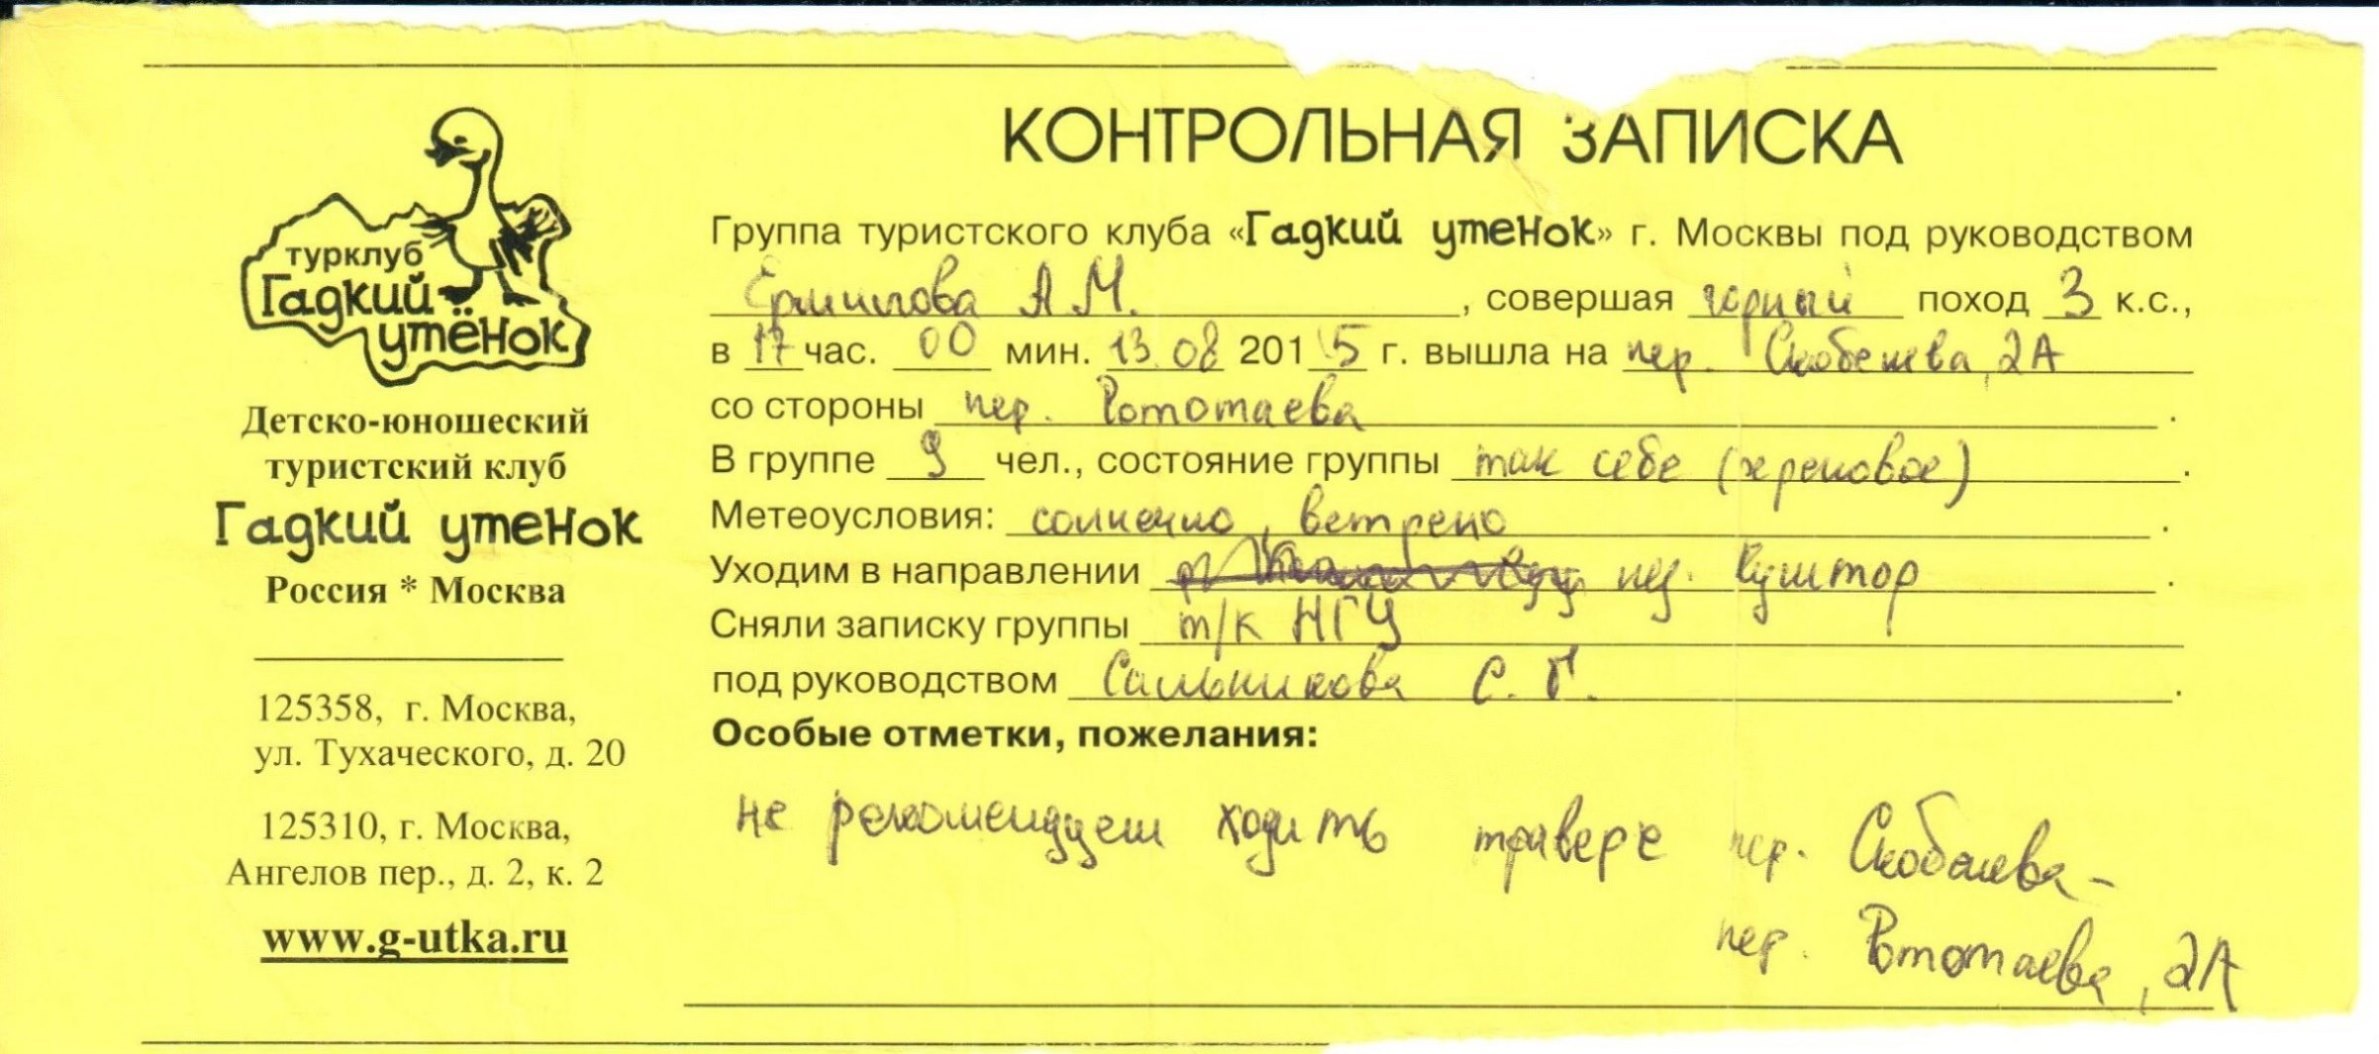 турклуб
Гадкий
утёнок
Детско-юношеский
туристский клуб
Гадкий утенок
Россия * Москва
125358, г. Москва,
ул. Тухаческого, д. 20
125310, г. Москва,
Ангелов пер., д. 2, к. 2
www.g-utka.ru
КОНТРОЛЬНАЯ ЗАПИСКА
Группа туристского клуба «Гадкий утенок» г. Москвы под руководством
Ермилова А.М., совершая горный поход 3 к.с.,
в 17 час. 00 мин. 13.08 2015 г. вышла на пер. Скобелева, 2А
со стороны пер. Рототаева.
В группе 9 чел., состояние группы так себе (хреновое).
Метеоусловия: солнечно, ветрено.
Уходим в направлении пер. Куштор.
Сняли записку группы т/к НГУ
под руководством Сальникова С. Г.
Особые отметки, пожелания:
не рекомендуем ходить траверс пер. Скобелева-
пер. Рототаева, 2А